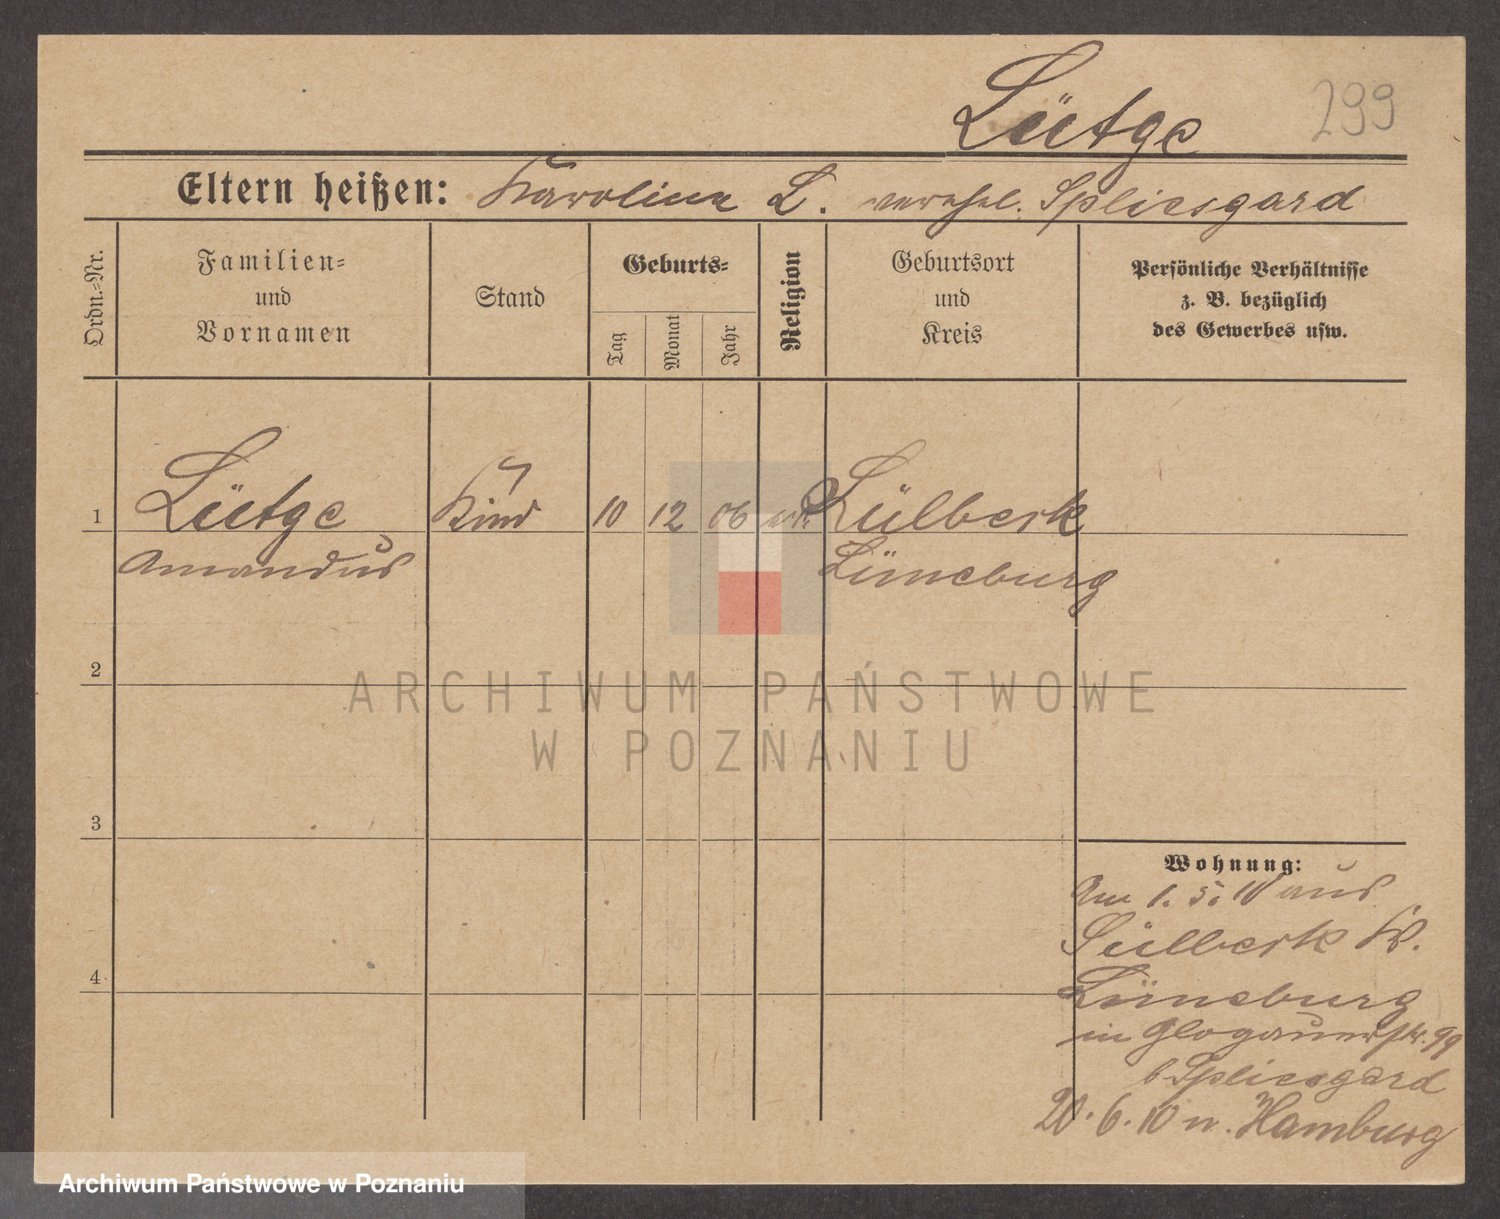 Lütge 299
Eltern heißen: Karoline L. verehel. Spliesgard
Ordn.=Nr.
Familien=
und
Vornamen
Stand
Geburts=
Tag
Monat
Jahr
Religion
Geburtsort
und
Kreis
Persönliche Verhältnisse
z. B. bezüglich
des Gewerbes usw.
1 Lütge Kind 10 12 06 Sülbeck
Amandus Lüneburg
2
3
4
Wohnung:
Am 1. 5. 10 aus
Sülbeck Kr.
Lüneburg
in Glogauerstr. 99
b Spliesgard
20. 6. 10 n. Hamburg
ARCHIWUM PAŃSTWOWE
W POZNANIU
Archiwum Państwowe w Poznaniu